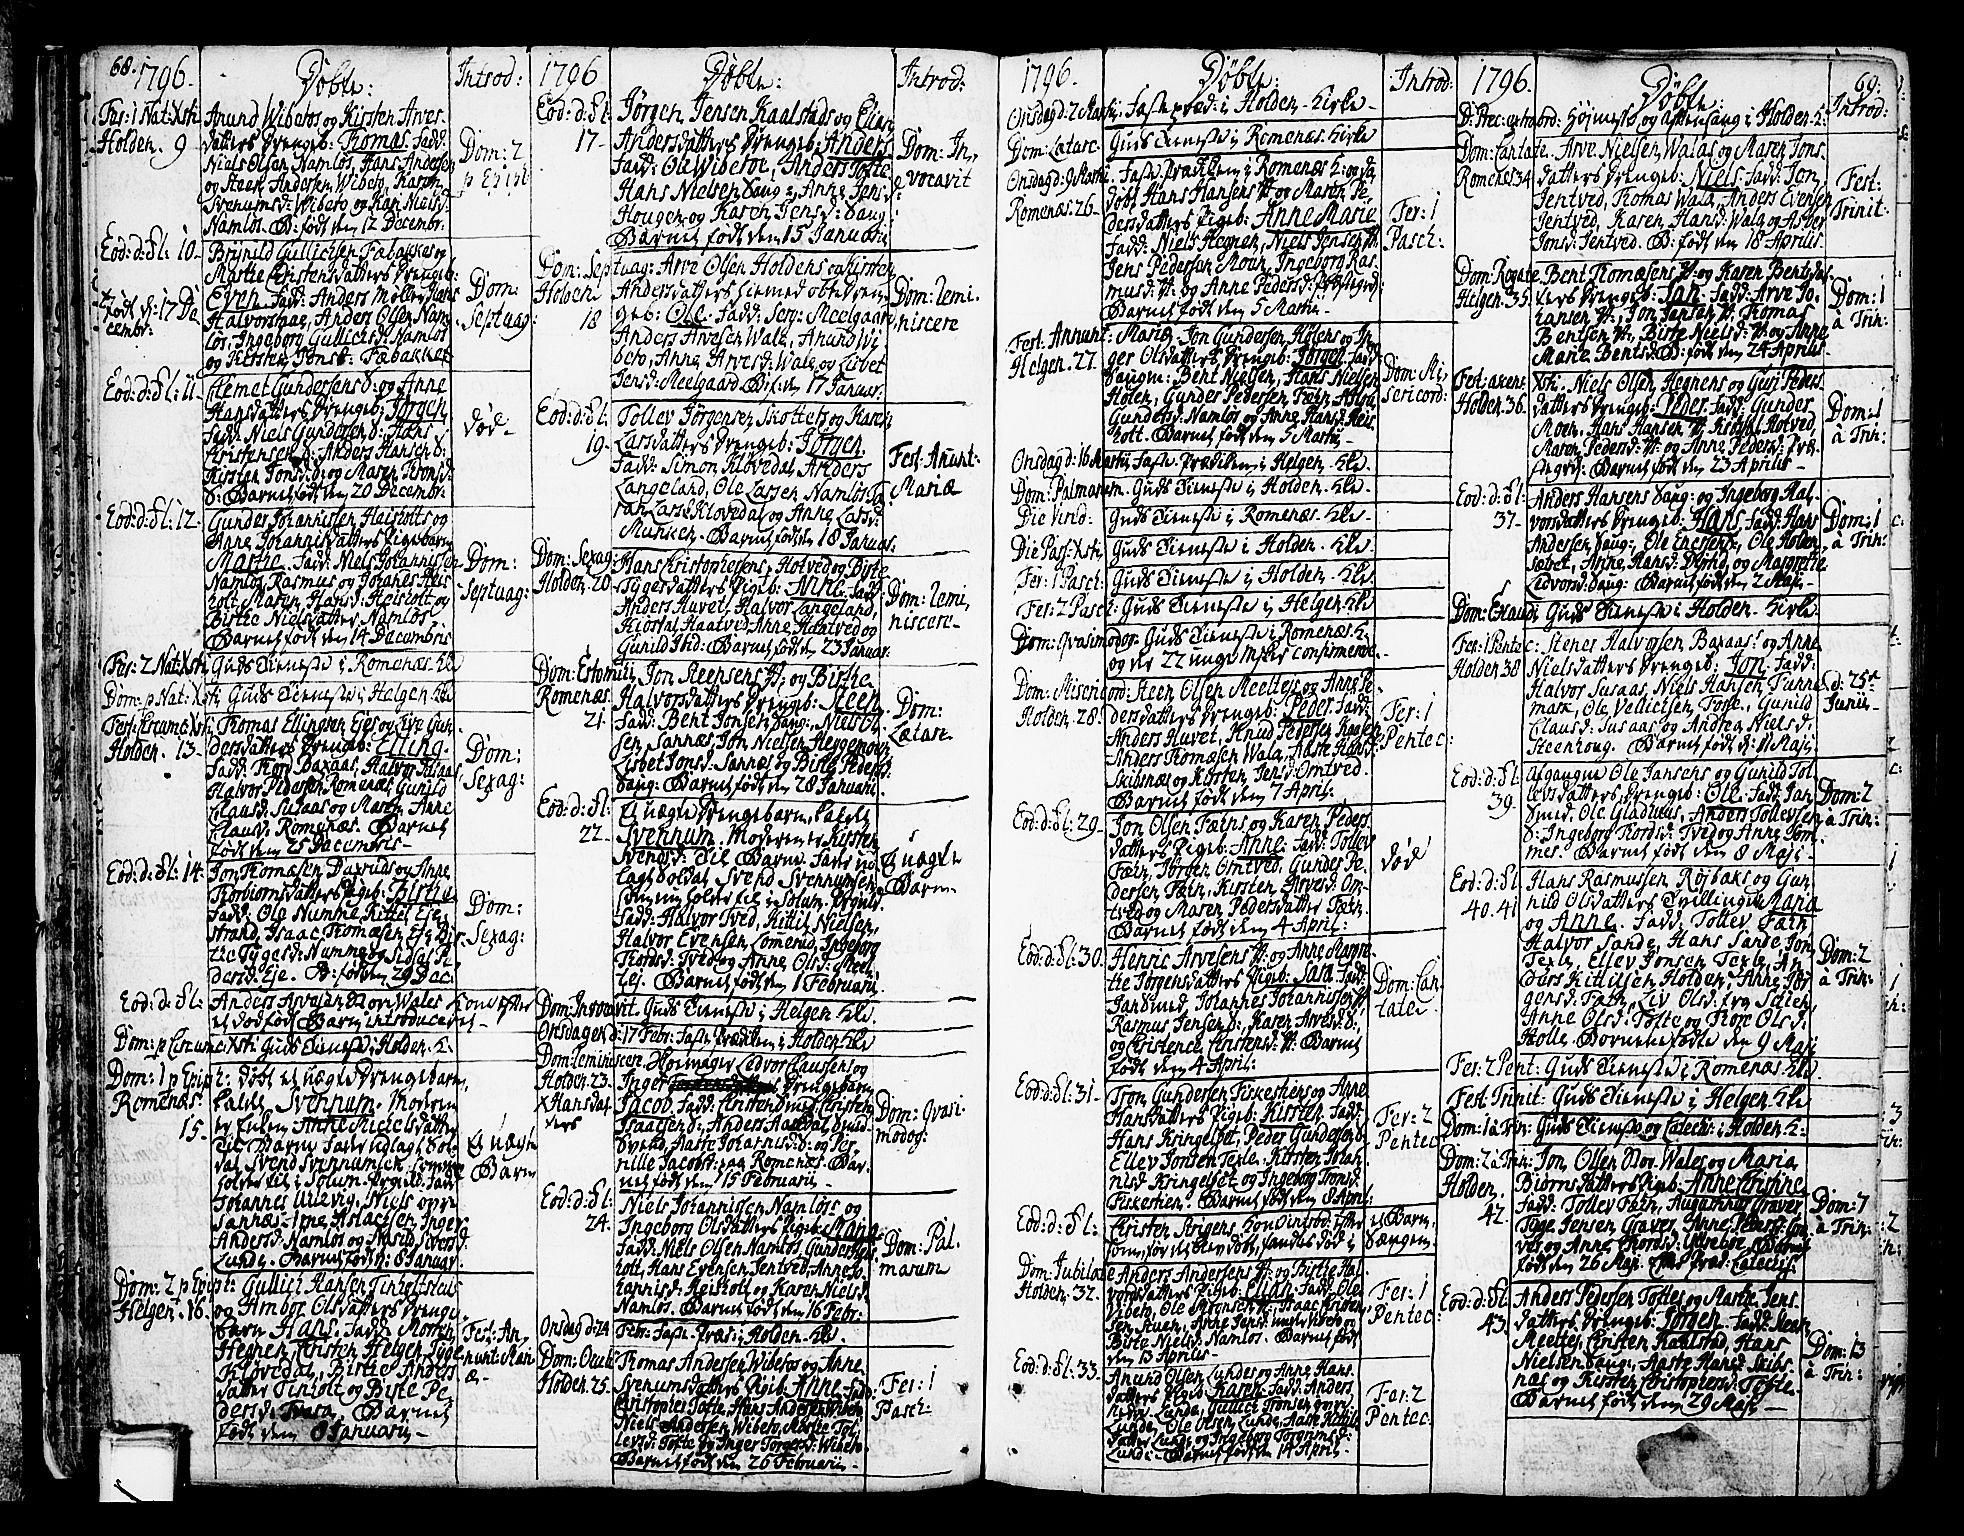 68. 1796.
Døbte:
Introd:
Fer: 1 Nat: Xsti
Holden. 9
Anund Wibetos og Kirsten Arves
datters drengeb: Thomas. Fadd:
Niels Olsen Namløs, Hans Andersen
og Steen Andersen Wibeto, Karen
Svenumsd: Wibeto og Karen Nielsd:
Namløs. B: født den 12 Decembr.
Dom: 2
p Epiph
Eod: d: Fl: 10.
født d: 17 De
cembr:
Brynild Gullichsen Fæbakke og
Marthe Christensdatters drengeb:
Even. Fadd: Anders Møller, Hans
Halvorsen, Anders Olsen Nam
løs, Ingeborg Gullichsd: Namløs
og Kirsten Jonsd: Fæbakke
Dom:
Septuag:
Eod: d: Fl: 11.
Clemet Gundersens d: og Anne
Hansdatters drengeb: Jørgen
Fadd: Niels Gundersen d: Hans
Christensen d: Anders Hansen d:
Kirsten Jonsd: d: og Maren Thorsd:
d: Barnet født den 20 Decembr.
død.
Eod: d: Fl: 12.
Gunder Johannissen Heisholts og
Anne Johannisdatters Pigebarn
Marthe. Fadd: Niels Johannissen
Namløs, Rasmus og Johanes Heis
holt, Maren Hansd: Heisholt og
Birthe Nielsdatter Namløs.
Barnet født den 14 Decembris
Dom:
Septuag:
Fer: 2 Nat: Xsti Guds Tieneste i Romenæs Kke
Dom: p Nat: Xsti Guds Tieneste i Helgen Kke
Fest: Circumc: Xsti
Holden. 13.
Thomas Ellingsen Ejes og Live Gun
dersdatters drengeb: Elling.
Fadd: Thor Baxaas, Halvor Susaas
Halvor Pedersen Romenæs, Gunild
Clausd: Susaas og Maren Anne
Clausd: Romenæs. Barnet
født den 25 Decembris
Dom:
Sexag:
Eod: d: Fl: 14.
Jon Thomæsen og Anne
Thorbiørnsdatters Pigeb: Birthe
Fadd: Ole Numme, Kittel Eje
strand, Isaac Thomæsen Eje, Bir
the Tygesd: Numme og Sidsel Pe
dersd: Eje. B: født den 29 Dec:
Dom:
Sexag:
Eod: d: Fl:
Anders Arvesen Nore Wales Kone efter
et dødfødt Barn introduceret
Dom: p Circumc: Xsti Guds Tieneste i Holden K:
Dom: 1 p Epiph:
Romenæs.
15.
døbt et uægte drengebarn,
kaldet Svennum. Moderen
er Enken Anne Nielsdatter
Til Barne Fader udlagt Sol-
dat Svend Svennumsen
holder til i Solum Prgield. Fadd:
Johannes Ullevig, Niels
Sannæs, Arne Aslachsen, Inger
Andersd: Namløs og Siversd:
Lunde. Barnet født d: 8 Januar.
Et uægte
Barn
Dom: 2 p Epiph:
Helgen. 16.
Gullich Hansen Tinholts
og Ambør Olsdatters drenge
barn Hans. Fadd: Morten
Hegnen, Christen Helgen, Tyge
Kløvedal, Birthe Anders
datter Tinholt og Birthe Pe
dersd: Barnet
født den 8 Januarii
Fest: An,
nunt: Mari
æ
1796
Døbte:
Introd:
Eod: d: Fl:
17.
Jørgen Jensen Kaalstads og Elian
Andersdatters drengeb: Anders
Fadd: Ole Wibetoe, Anders Tofte,
Hans Nielsen Haug, Anne Jensd:
Hougen og Karen Jensd: Haug
Barnet født den 15 Januarii
Dom: In,
vocavit
Dom: Sep
Holden
18
tuag: Arve Olsen Holdens og Kirsten
Andersdatters hiemedøbte dren
geb: Ole. Fadd: Serg: Meelgaard
Anders Arvesen Wala, Anund Wi
beto, Anne Arvesd: Wala og Lisbet
Jensd: Meelgaard. B: f: den 17 Januar:
Dom: Remi,
niscere
Eod: d: Fl:
19.
Tollev Jørgensen Skottets og Karen
Larsdatters drengeb: Jørgen
Fadd: Simon Kløvedal, Anders
Langeland, Ole Larsen Namløs, Ka
ren Larsd: Kløvedal og Anne Larsd:
Barnet født den 18 Januar:
Fest: Anunt:
Mariæ
Dom: Sexag:
Holden 20
Hans Christophersens Hotved og Birthe
Tygesdatters Pigeb: Anne. Fadd:
Anders Huvet, Halvor Langeland,
Kiøstel Haatved, Anne Haatved og
Gunild Ibid: Barnet født den 23 Januar:
Dom: Remi,
niscere
Dom: Estomihi
Romenæs.
21.
Jon Steensens H: og Birthe
Halvorsdatters drengeb: Steen
Fadd: Bent Jonsen Haug: Niels Ol-
sen Sannæs, Jon Nielsen Heggemoen
Lisbet Jonsd: Sannæs og Birthe Pedersd:
Haug: Barnet født den 28 Januarii.
Dom:
Lætare
Eod: d: Fl:
22.
Et uægte drengebarn, kaldet
Svennum. Moderen er Kirsten
Svendsd: Til Barne Fader ud
lagt Soldat Svend Svennumsen,
som nu holder til i Solum Prgield.
Fadd: Halvor Tved, Kittil Nielsen,
Halvor Evensen Lomerud, Ingeborg
Thordsd: Tved og Anne Olsd:
Eej. Barnet født den 1 Februarii
Et uægte
Barn.
Dom: Invocavit Guds Tieneste i Helgen Kke.
Onsdagen d: 17 Febr: Faste Prædiken i Holden Kke
Dom: Reminiscere.
Holden 23.
Ledvor Clausen og
Inger Hansdatters drengebarn
Jacob. Fadd: Christen Christen
Isaacsen d: Anders Haatval,
Aaste Johannisd: d: og Per,
nille Jacobsd: paa Romenæs. Bar
net født den 15 Februarii
XHansdat
ters
Dom: Qvasi
modog:
Eod: d: Fl:
24.
Niels Johannissen Namløs og
Ingeborg Olsdatters Pigeb: Maria
Fadd: Niels Olsen Namløs, Gunder Heis
holt, Hans Evensen Jentved, Anne Jo
hannisd: Heisholt og Karen Nielsd:
Namløs. Barnet født den 16 Febr:
Dom: Pal,
marum
Onsdag d: 24 Febr: Faste Præd: i Holden Kke.
Dom: Oculi
Holden 25.
Thomas Andersen Wibetos og Anne
Svenumsdatters Pigeb: Anne. Fadd:
Christopher Tofte, Hans Andersen Wibeto
Niels Andersen Wibeto, Marthe Tol
levsd: Tofte og Inger Torgersd: Wibeto
Barnet født den 26 Februarii
Fer: 1
Pasch:
1796.
Døbte:
Introd:
Onsdag d: 2 Martii: Faste præd: i Holden Kirke.
Dom: Lætare. Guds Tieneste i Romenæs Kirke
Onsdag d: 9 Martii
Romenæs 26.
Faste Prædiken i Romenæs K: og da
døbt Hans Hansens H: og Marthe Pe
dersdatters Pigeb: Anne Marie
Fadd: Niels Hegnen, Niels Jensen H:
Jens Pedersen Moen, Ingeborg Ras,
musd: H: og Anne Pedersd: Præstegrd:
Barnet født den 5 Martii
Fer: 1
Pasch:
Fest: Annunt:
Helgen. 27.
Mariæ. Jon Gundersen Holtens og In
ger Olsdatters drengeb: Jørgen. Fadd:
Haugen: Bent Nielsen, Hans Nielsen
Holten, Gunder Pedersen Fæhn,
Gundersd: Namløs og Anne Hansd: Heis
holt. Barnet født den 5 Martii
Dom: Mi,
sericord:
Onsdag d: 16 Martii Faste Prædiken i Helgen Kke
Dom: Palmarum. Guds Tieneste i Holden Kke.
Die virid: Guds Tieneste i Romenæs Kke.
Die Pass: Xsti Guds Tieneste i Holden Kke.
Fer: 1 Pasch: Guds Tieneste i Holden Kke.
Fer: 2 Pasch: Guds Tieneste i Helgen Kke
Dom: Qvasimodog: Guds Tieneste i Romenæs K:
og der 22 unge Msker confirmerede.
Dom: Misericord:
Holden. 28.
Steen Olsen Meelteig og Anne Pe
dersdatters drengeb: Peder. Fadd:
Anders Huvet, Knud Pedersen
Anders Thomæsen Wala, Aaste Hansd:
Skibsnæs og Kirsten Jensd: Omtved.
Barnet født den 7 April:
Fer: 1
Pentec:
Eod: d: Fl: 29.
Jon Olsen Fæhns og Karen Peders
datters Pigeb: Anne. Fadd: Tollev
Fæhn, Jørgen Omtved, Gunder Pe
dersen Fæhn, Kirsten Arvesd: Om
tved og Maren Pedersdatter Fæhn.
Barnet født den 4 April:
død
Eod: d: Fl: 30.
Henric Arvesens H: og Anne Magre
the Jørgensdatters Pigeb: Sara. Fadd:
Sandsmed, Johannes Johannissen H:
Rasmus Jensen d: Karen Arvesd: d:
og Christence Christensd: H: Barnet
født den 4 April:
Dom: Can,
tate
Eod: d: Fl: 31.
Tron Gundersen Fiskestiens og Anne
Hansdatters Pigeb: Kirsten. Fadd:
Hans Kringelset, Peder Gundersen d:
Ellev Jonsen Texle, Kirsten Johan
nisd: Kringelset og Ingeborg Tronsd:
Fiskestien. Barnet født den 8 April:
Fer: 2
Pentec
Eod: d: Fl:
Christen Strigens Kone introd: efter et Barn,
som, før det blev døbt, fandtes død i Sængen
Dom: Jubilate
Holden. 32.
Anders Andersens H: og Birthe Hal
vorsdatters Pigeb: Elian. Fadd: Ole
Wibeto, Ole Aronsen H: Isaac Christen
sen Stuen, Anne Jensd: under Wibeto og
Birthe Nielsd: Namløs. Barnet født
den 13 Aprilis
Fer: 1
Pentec:
Eod: d: Fl: 33.
Anund Olsen Lundes og Anne Hans
datters Pigeb: Karen. Fadd: Anders
nedre Lunde, Gullich Tronsen øvre
Lunde, Ole Olsen Lunde, Aaste Kittils
datter Lunde og Ingeborg Torgrimsd:
Lunde. Barnet født den 14 April.
Fer: 2
Pentec:
1796.
Døbte:
69.
Introd:
D: Prec: extraord: Højmesse og Aftensang i Holden K:
Dom: Cantate.
Romenæs 34
Arve Nielsen Walas og Maren Jons
datters drengeb: Niels. Fadd: Jon
Jentved, Thomas Wala, Anders Evensen
Jentved, Karen Hansd: Wala og
Jonsd: Jentved. B: født den 18 Aprilis
Fest:
Trinit:
Dom: Rogate
Helgen. 35.
Bent Thomæsens H: og Karen Bentsdat
ters drengeb: Jan. Fadd: Arve Jo
hansen H: Jon Jansen H: Thomas
Bentsen H: Birthe Nielsd: H: og Anne
Marie Bentsd: B: født den 24 Aprilis
Dom: 1
à Trin:
Fest: ascens:
Holden 36.
Xsti. Niels Olsen Hegnens og Guri Peders
datters drengeb: Peder. Fadd: Gunder
Moen, Hans Hansen H: Kiøstel Hotved,
Maren Pedersd: H: og Anne Pedersd: Præ
stegrd: Barnet født den 23 Aprilis
Dom: 1
à Trin:
Eod: d: Fl:
37.
Anders Hansens Haug: og Ingeborg Hal,
vorsdatters drengeb: Hans. Fadd: Hans
Andersen Haug:, Ole Enersen, Ole Holden,
Sævet, Anne Hansd: Dyrud, og Margrethe
Ledvorsd: Haug: Barnet født den 2 Maji.
Dom: 1
à Trin:
Dom: Exaudi Guds Tieneste i Holden Kirke.
Fer: 1 Pentec:
Holden 38
Stenes Halvorsen Baxaas: og Anne
Nielsdatters drengeb: Jon. Fadd:
Halvor Susaas, Niels Hansen Funne
mark, Ole Vedichsen Tofte, Gunild
Clausd: Susaas og Andrea Nielsd:
Steenhoug. Barnet født d: 11 Maji
d: 25de
Junii
Eod: d: Fl:
39.
Afgangne Ole Jansens og Gunild Tol
levsdatters drengeb: Ole. Fadd: Jan
Smed, Ole Gladhuus, Anders Tollevsen
d: Ingeborg Thordsd: Tved og Anne Tom
mes. Barnet født den 8 Maji
Dom: 2
à Trin:
Eod: d: Fl:
40. 41
Hans Rasmussen Røjbaks og Gun
hild Olsdatters Tvillinger Maria
og Anne. Fadd: Tollev Fæhn
Halvor Sande, Hans Sande, Jon
Texle, Ellev Jonsen Texle, An
ders Kittilsen Holden, Anne Jør
gensd: Fæhn, Liv Olsd: fra Schien,
Anne Olsd: Tofte og Thore Olsd:
Holle. Børnene fødte den 9 Maji
Dom: 2
à Trin:
Fer: 2 Pent: Guds Tieneste i Romenæs Kke.
Fest: Trinit: Guds Tieneste i Helgen Kke
Dom: 1 à Trin: Guds Tieneste og Catech: i Holden K:
Dom: 2 à Trin:
Holden.
42.
Jon Olsen Nor: Wales og Maria
Biørnsdatters Pigeb: Anne Cristine
Fadd: Tollev Fæhn, Augustinus Graver,
Tyge Jensen Graver, Anne Pedersd: Gra
ver og Anne Thordsd: Barnet
født den 26 Maji. Catechis.
Dom: 7
à Trin:
Eod: d: Fl:
43.
Anders Pedersen Toftes og Marthe Jens
datters drengeb: Jørgen. Fadd: Steen
Meelteig, Christen Kaalstad, Hans
Nielsen Haug:, Aaste Hansd: Skibs
næs og Kirsten Christophersd: Tofte.
Barnet født den 29 Maji
Dom: 13
à Trin: